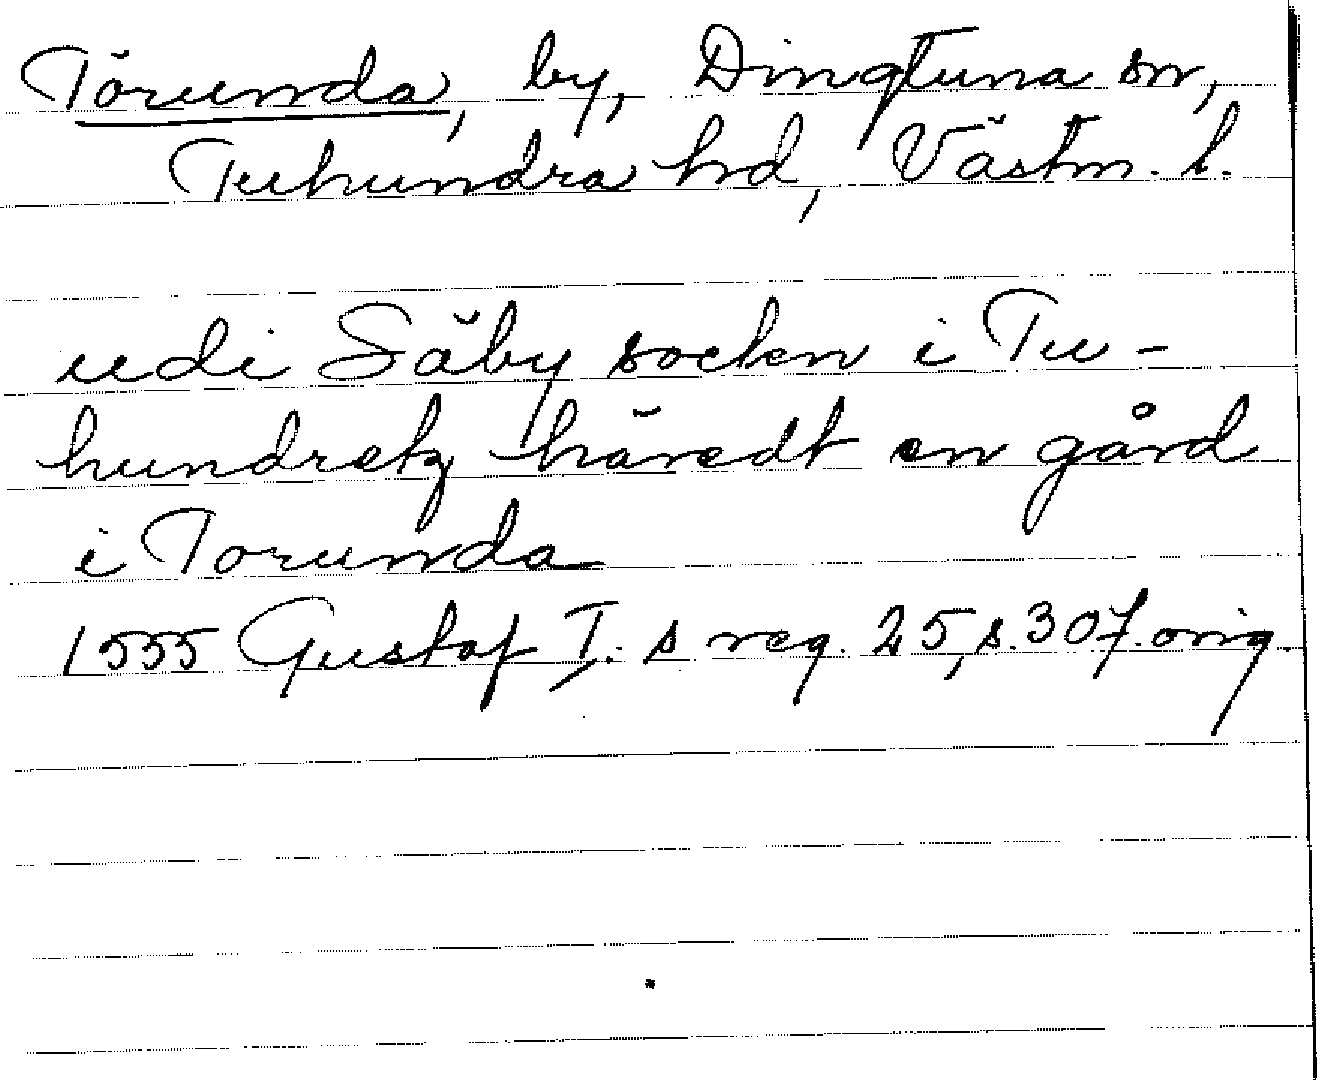 Törunda, by, Dingtuna sn,
Tuhundra hd, Västm. l.
udi Säby socken i Tu-
hundretz häredt en gård
i Torunda
1555 Gustaf I:s reg. 25, s. 307. orig.